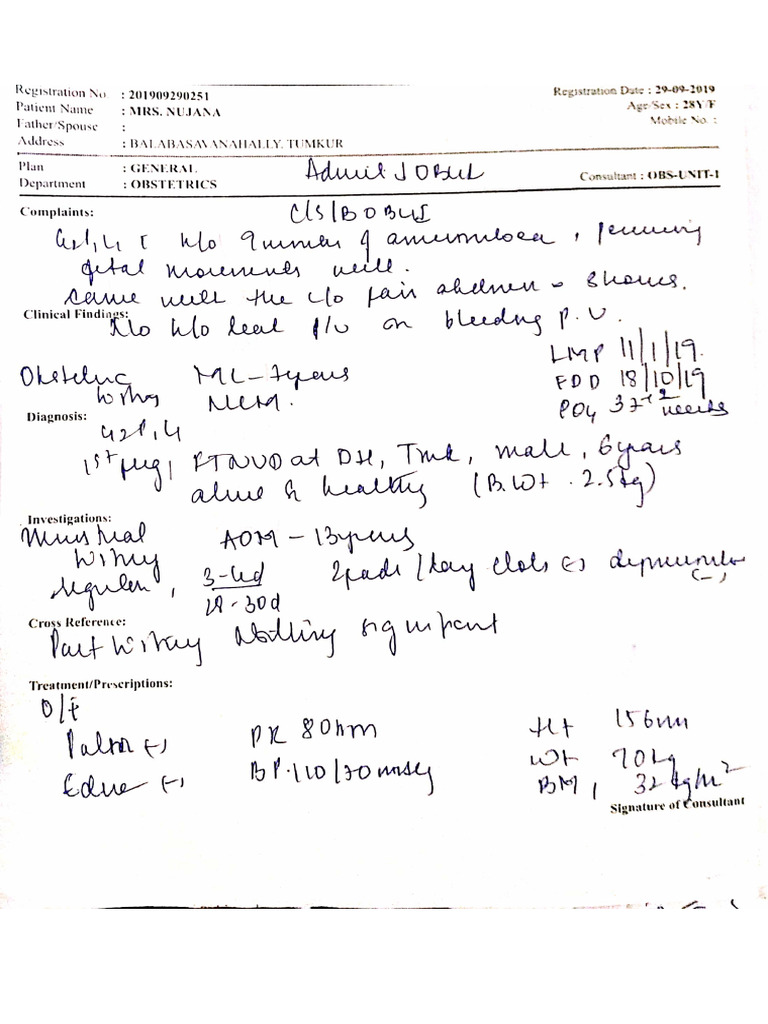 Registration No. : 201909290251
Registration Date : 29-09-2019
Patient Name : MRS. NUJANA
Age/Sex : 28Y/F
Father/Spouse :
Mobile No. :
Address : BALABASAVANAHALLY, TUMKUR
Plan : GENERAL
Department : OBSTETRICS
Admit
Consultant : OBS-UNIT-1
Complaints:
C/S/B
G2P1L1 c H/o 9 months of amenorrhoea, perceiving
fetal movements well.
came with the c/o pain abdomen
Clinical Findings:
No h/o leak p/v or bleeding P.V.
LMP 11/1/19.
EDD 18/10/19
POG 37+2 weeks
Obstetric History
ML - 7years
NCM.
Diagnosis:
G2P1L1
1st preg, FTNVD at DH, Tmk, male, 6years
alive & healthy (B.Wt. 2.5kg)
Investigations:
Menstrual History
AOM - 13years
regular, 3-4d
28-30d
2pads/day clots (-) dysmenorrhoea (-)
Cross Reference:
Past History Nothing significant
Treatment/Prescriptions:
O/E
Pallor (-)
PR 80bpm
Ht 156cm
Edema (-)
BP 110/70mmHg
Wt 70kg
BMI 32 kg/m²
Signature of Consultant